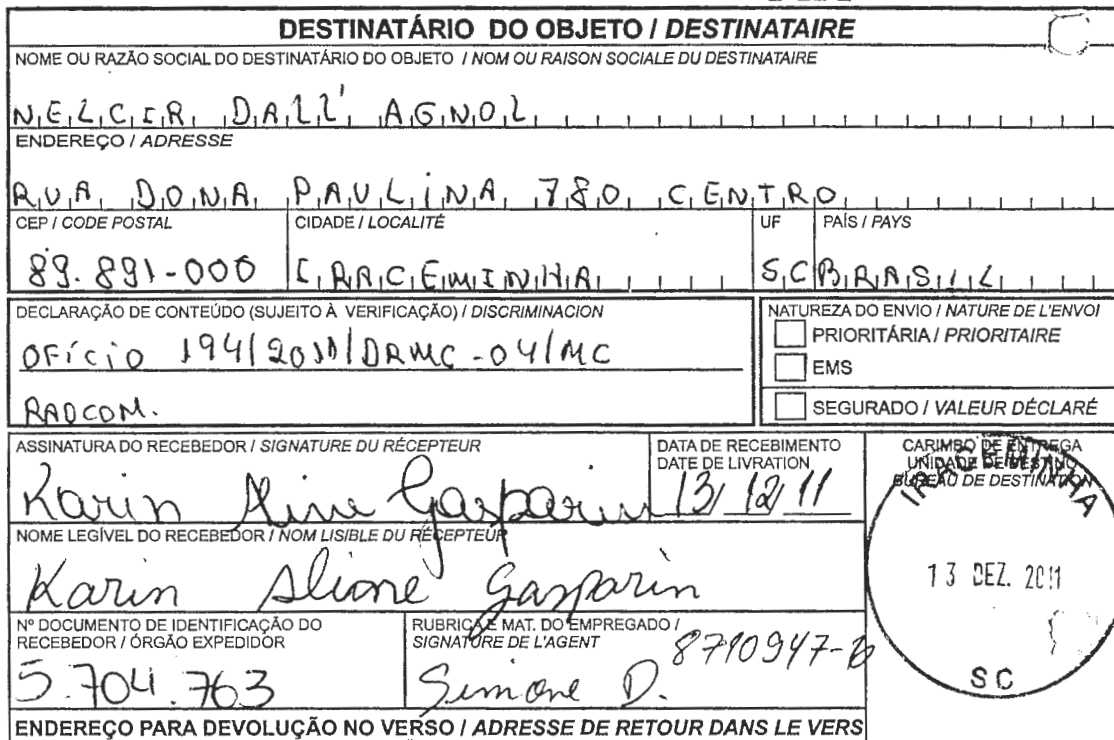 DESTINATÁRIO DO OBJETO / DESTINATAIRE
NOME OU RAZÃO SOCIAL DO DESTINATÁRIO DO OBJETO / NOM OU RAISON SOCIALE DU DESTINATAIRE
NELCIR DALL' AGNOL
ENDEREÇO / ADRESSE
RUA DONA PAULINA 780 CENTRO
CEP / CODE POSTAL CIDADE / LOCALITÉ UF PAÍS / PAYS
89.891-000 IRACEMINHA SC BRASIL
DECLARAÇÃO DE CONTEÚDO (SUJEITO À VERIFICAÇÃO) / DISCRIMINACION
OFÍCIO 194/2011/DRMC-04/MC
RADCOM.
NATUREZA DO ENVIO / NATURE DE L'ENVOI
PRIORITÁRIA / PRIORITAIRE
EMS
SEGURADO / VALEUR DÉCLARÉ
ASSINATURA DO RECEBEDOR / SIGNATURE DU RÉCEPTEUR
Karin Aline Gasparin
DATA DE RECEBIMENTO
DATE DE LIVRATION
13/12/11
CARIMBO DE ENTREGA
UNIDADE DE DESTINO
BUREAU DE DESTINATION
IRACEMINHA
13 DEZ. 2011
SC
NOME LEGÍVEL DO RECEBEDOR / NOM LISIBLE DU RÉCEPTEUR
Karin Aline Gasparin
Nº DOCUMENTO DE IDENTIFICAÇÃO DO
RECEBEDOR / ÓRGÃO EXPEDIDOR
5.704.763
RUBRICA E MAT. DO EMPREGADO /
SIGNATURE DE L'AGENT
8710947-6
Simone D.
ENDEREÇO PARA DEVOLUÇÃO NO VERSO / ADRESSE DE RETOUR DANS LE VERS